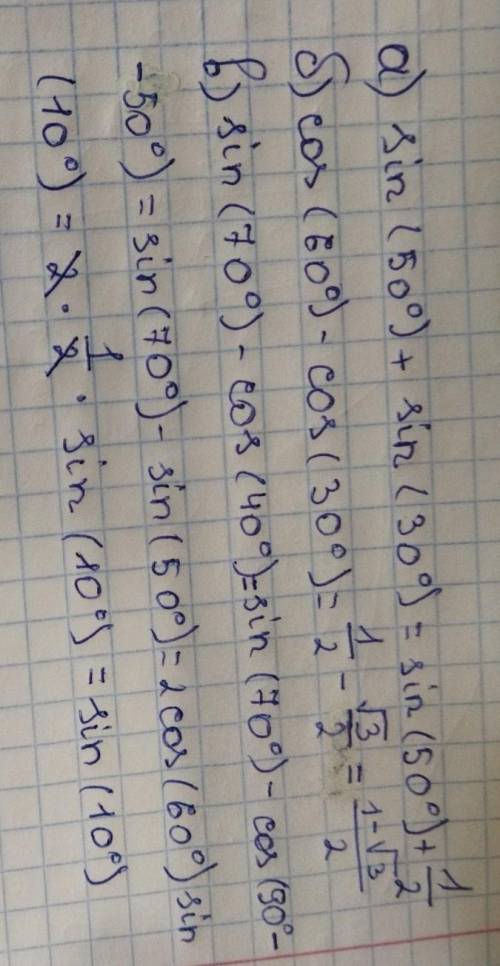 а) sin (50°) + sin (30°) = sin (50°) + 1/2
б) cos (60°) - cos (30°) = 1/2 - √3/2 = 1-√3/2
в) sin (70°) - cos (40°) = sin (70°) - cos (90° -
- 50°) = sin (70°) - sin (50°) = 2 cos (60°) sin
(10°) = 2 · 1/2 · sin (10°) = sin (10°)